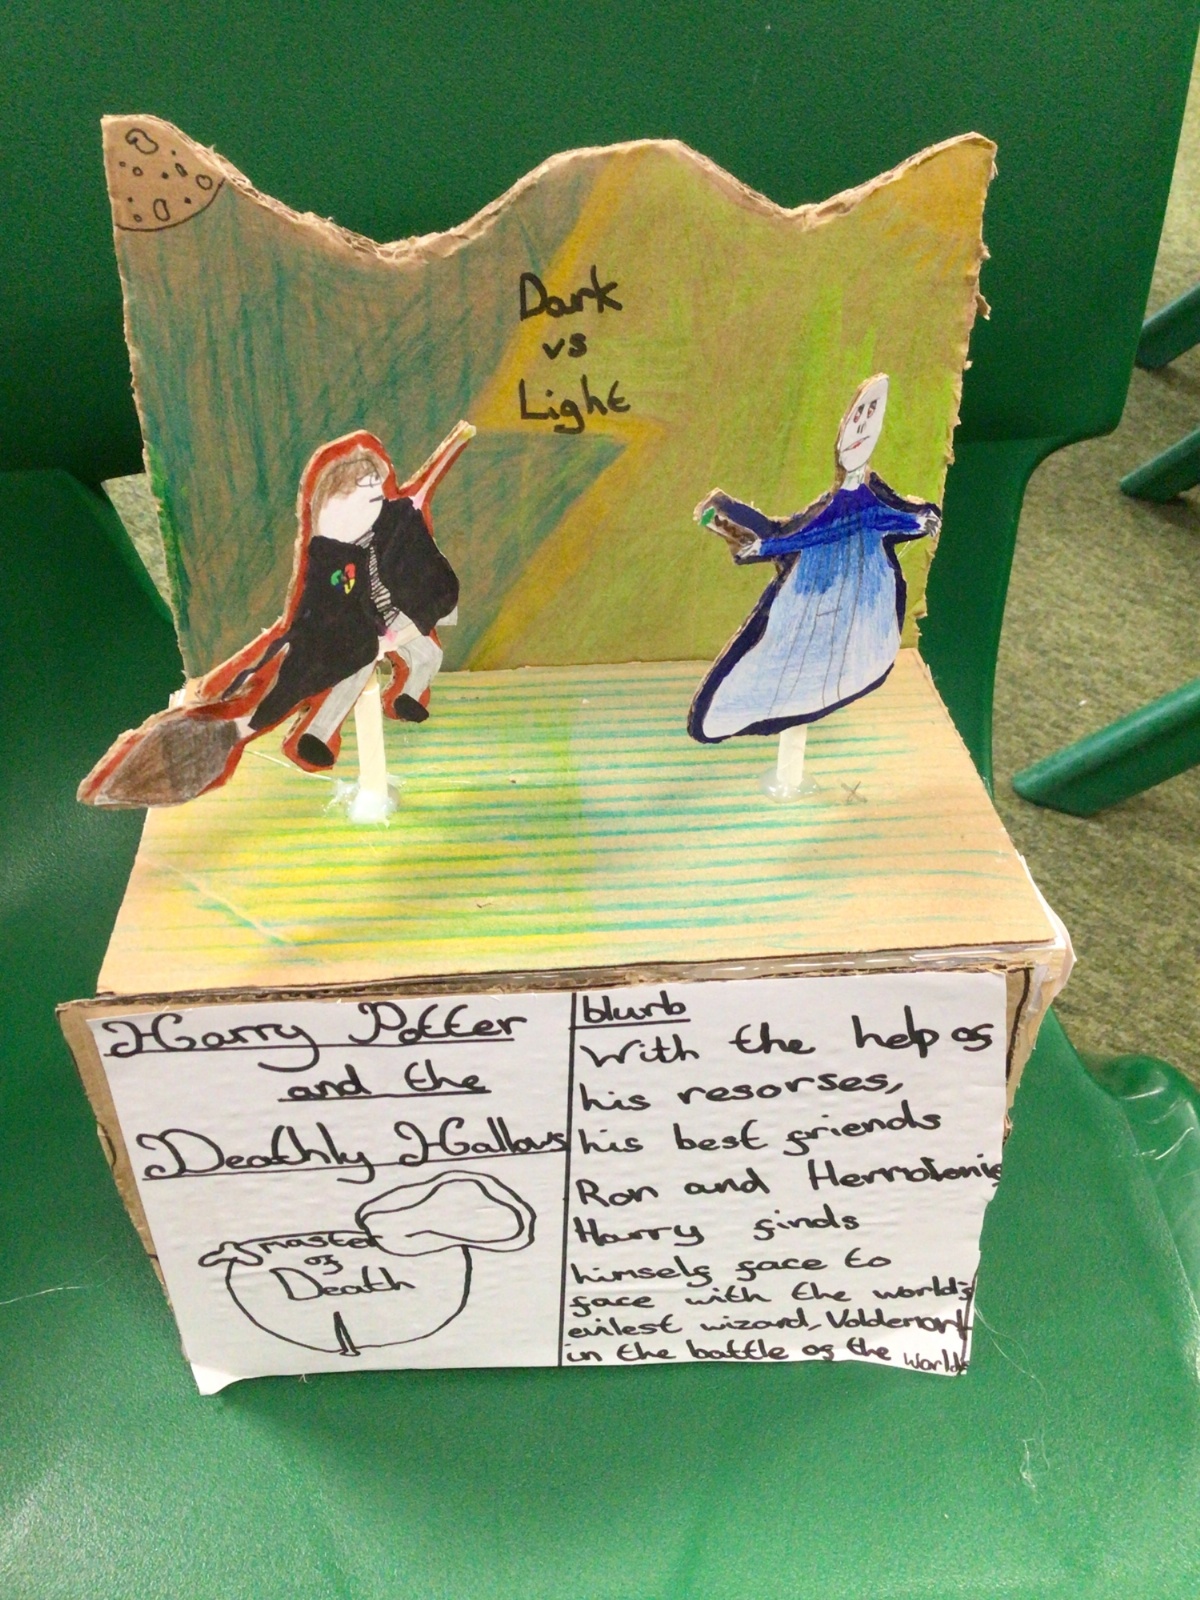 Dark
vs
Light
Harry Potter
and the
Deathly Hallows
master
of
Death
blurb
With the help of
his resorses,
his best friends
Ron and Hermionie
Harry finds
himself face to
face with the world's
evilest wizard, Voldemort
in the battle of the worlds